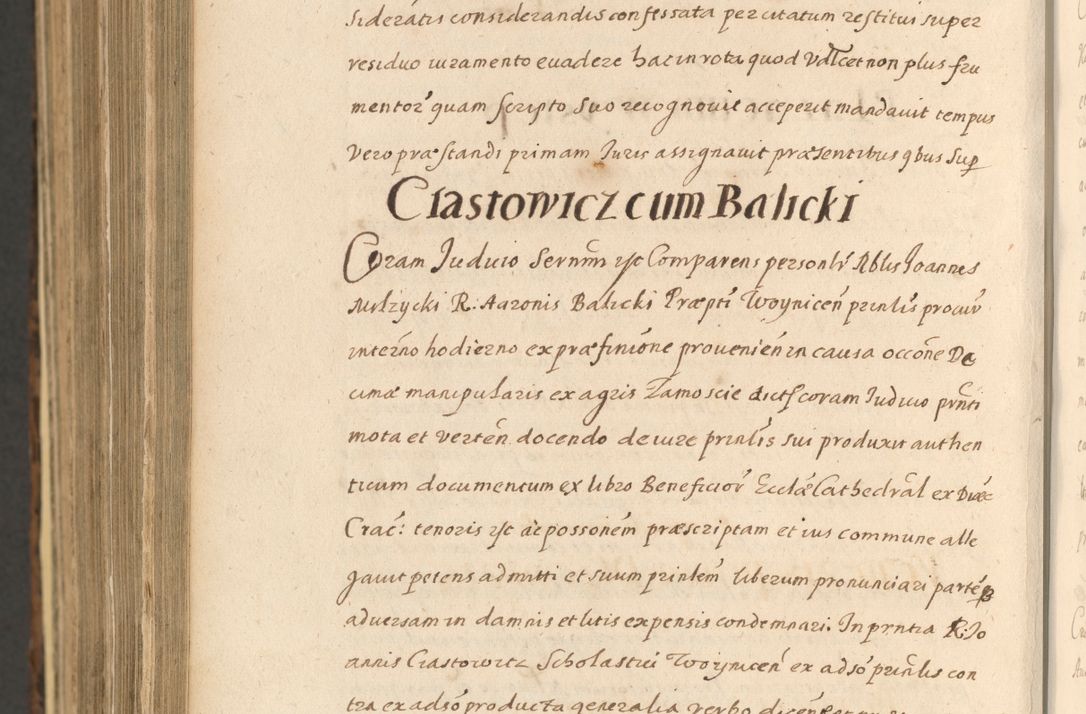 sideratis considerandis confessata per citatum restitui super
residuo iuramento evadere hac in rota quod Vdlicet non plus fru
mentor' quam scripto suo recognovit acceperit mandavit tempus
vero præstandi primam Iuris assignavit præsentibus qbus sup
Ciastowicz cum Balicki
Coram Iudicio Sernmi etc Comparens personlr Nblis Joannes
R. Aaronis Balicki Præpti Woynicen prinlis procur
in terno hodierno ex præfinione provenien in causa occone De
cimæ manipularis ex agris Zamoscie dicts coram Iudicio prnti
mota et verten docendo de iure prinlis sui produxit authen
ticum documentum ex libro Beneficior Ecclæ Cathedral ex Diæc
Crac: tenoris etc ac possonem præscriptam et ius commune alle
gavit petens admitti et suum prinlem liberum pronunciari parte
adversam in damnis et litis expensis condemnari. In prntia R: Jo
annis Ciastowicz Scholastici Woynicen ex adso prinlis con
tra ex adso producta generalia verbo dicen